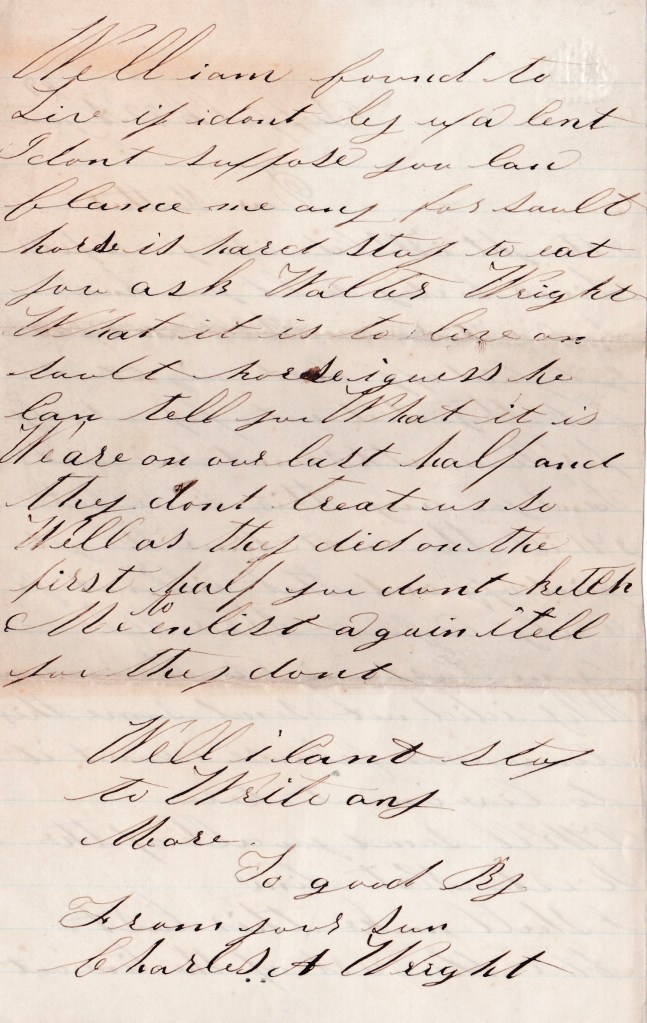 Well i am bound to
Live if i dont ley up a Cent
I dont suppose you Can
blame me any for sault
horse is hard stuf to eat
you ask Walter Wright
What it is to live on
sault horse i guess he
Can tell you What it is
We are on our last half and
they dont treat us so
Well as they did on the
first half you dont ketch
Me to enlist again i tell
you they dont
Well i Cant stop
to Write any
More.
So good By
From your sun
Charles. A Wright